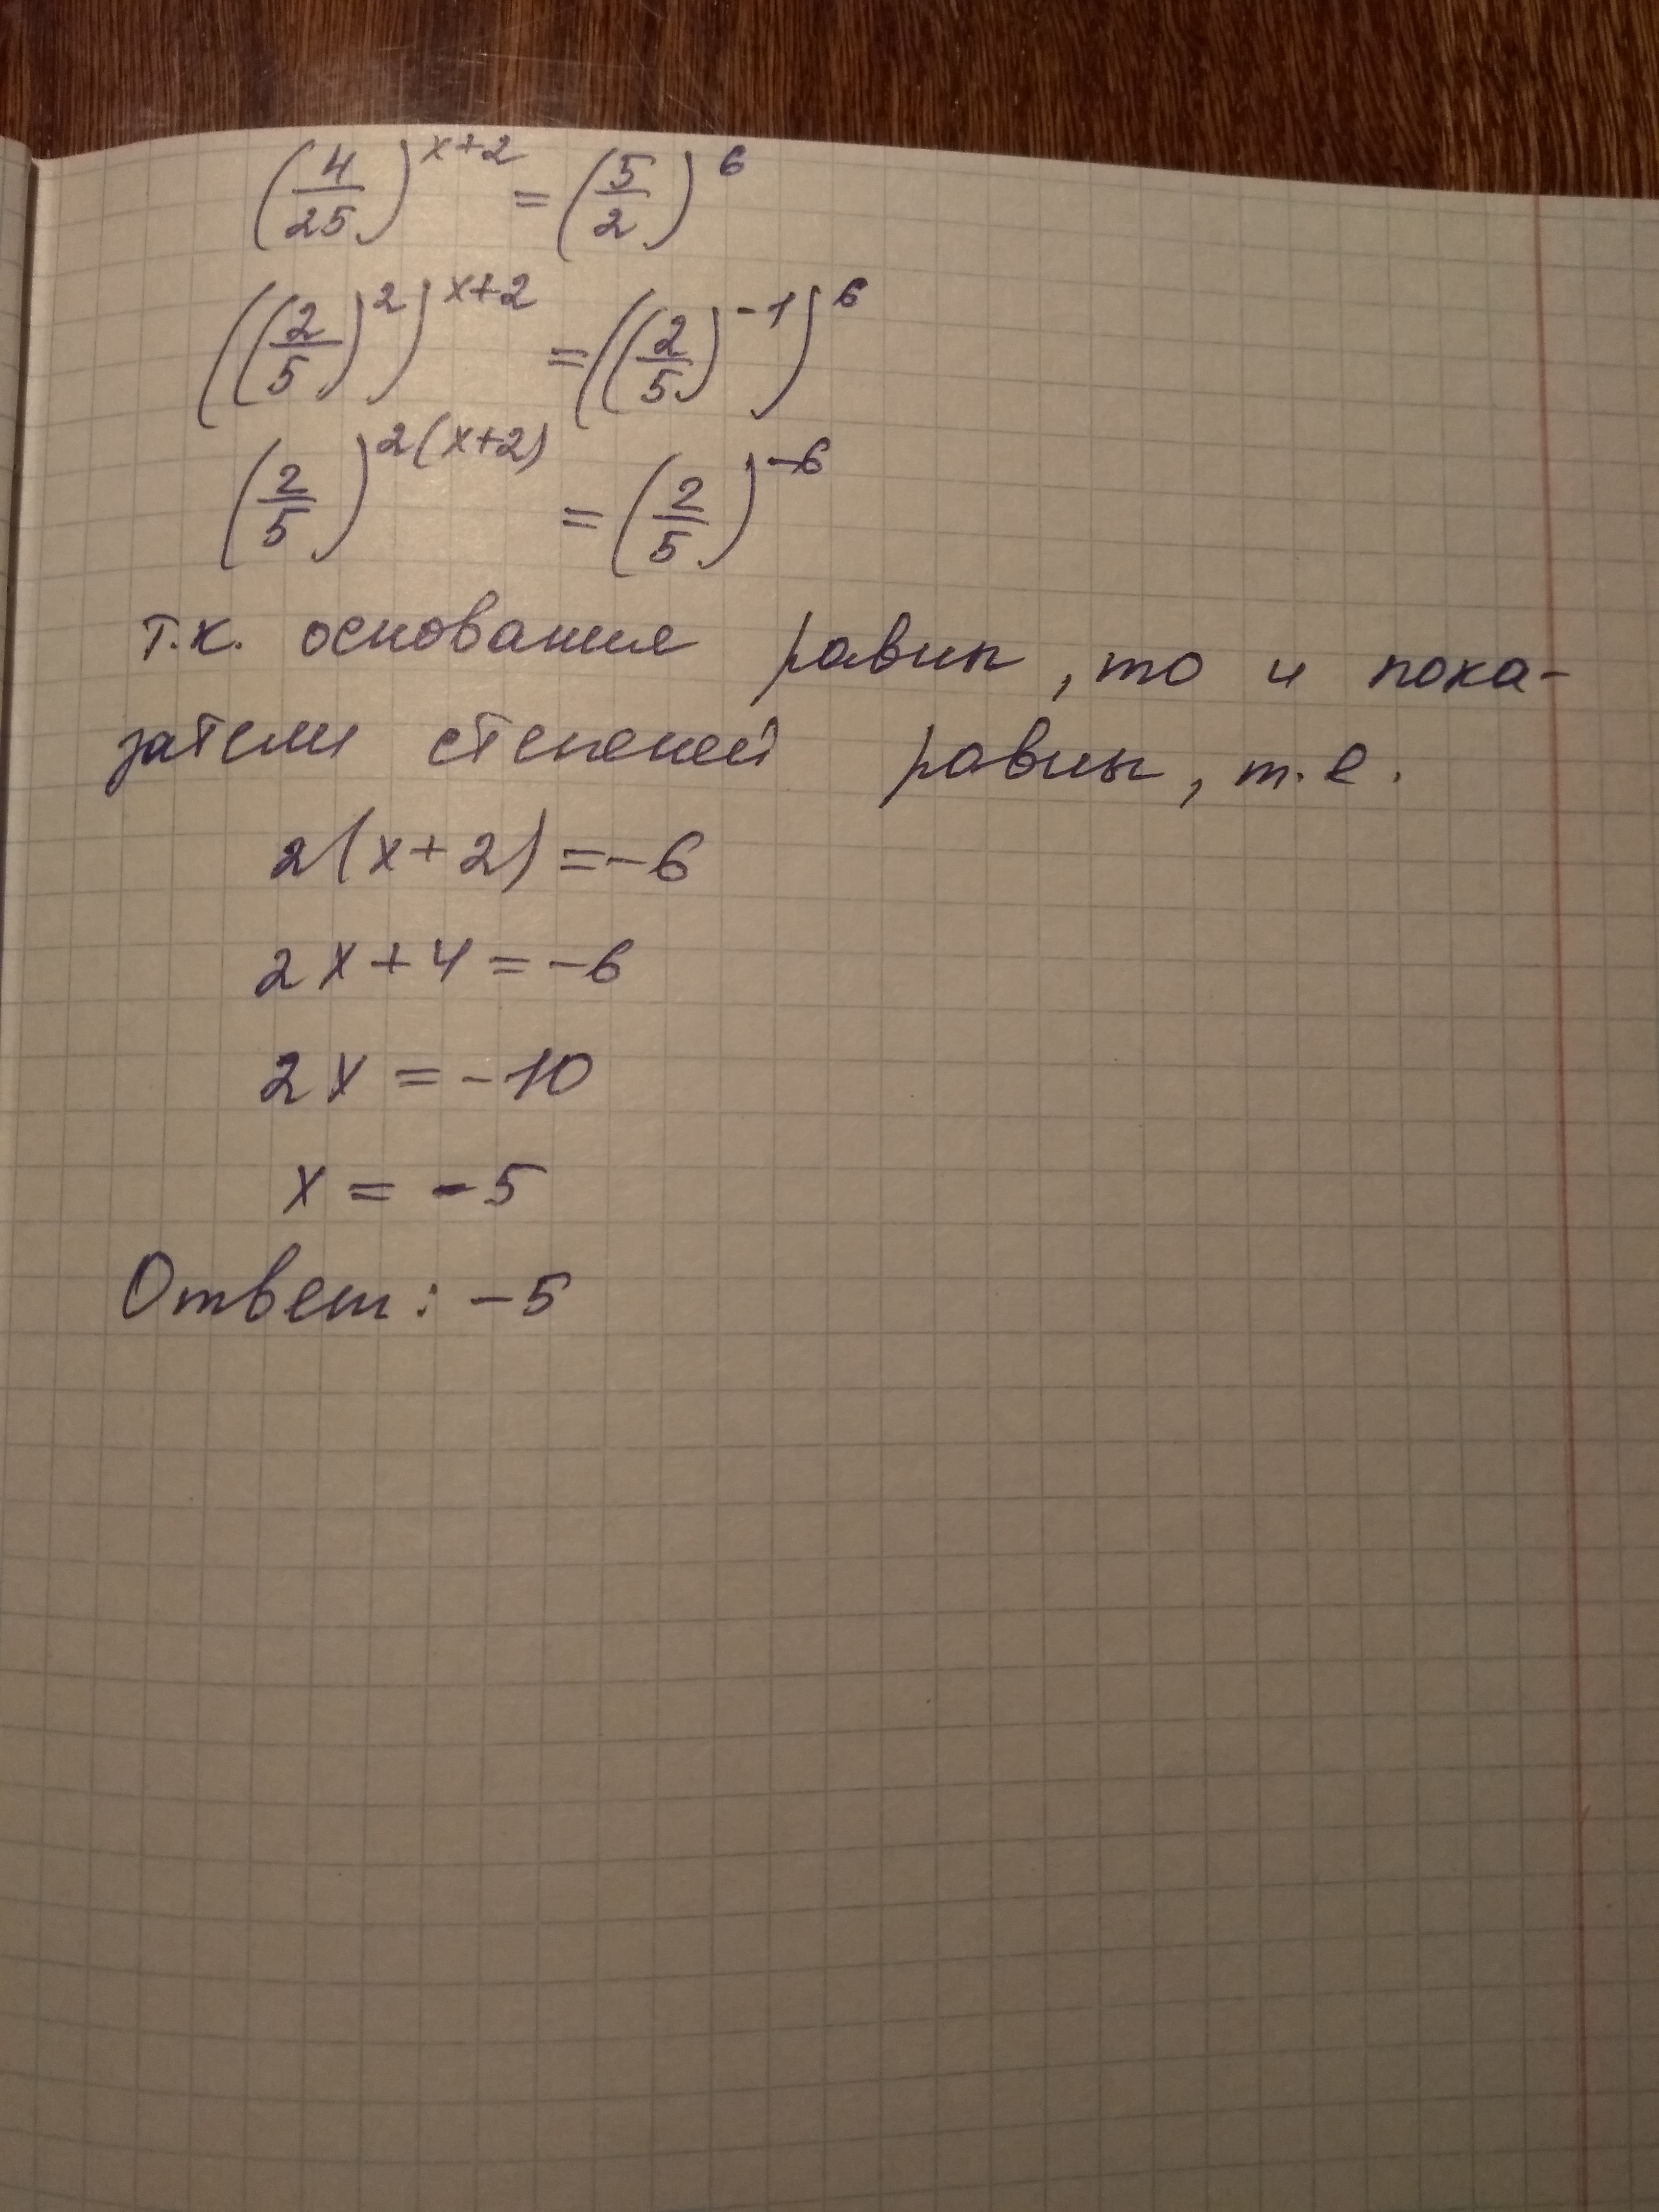 (4/25)^(x+2) = (5/2)^6
((2/5)^2)^(x+2) = ((2/5)^(-1))^6
(2/5)^(2(x+2)) = (2/5)^(-6)
т.к. основания равны, то и пока-
затели степеней равны, т.е.
2(x+2)=-6
2x+4=-6
2x=-10
x=-5
Ответ: -5